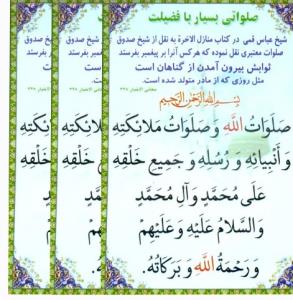 صلواتی بسیار با فضیلت
شیخ عباس قمی در کتاب منازل الاخرة به نقل از شیخ صدوق
صلوات معتبری نقل نموده که هرکس آنرا بر پیغمبر بفرستد
ثوابش بیرون آمدن از گناهان است
مثل روزی که از مادر متولد شده است.
بِسْمِ اللهِ الرَّحْمنِ الرَّحیمِ
صَلَوَاتُ اللَّهِ وَ صَلَوَاتُ مَلَائِکَتِهِ
وَ أَنْبِیَائِهِ وَ رُسُلِهِ وَ جَمِیعِ خَلْقِهِ
عَلَی مُحَمَّدٍ وَ آلِ مُحَمَّدٍ
وَ السَّلَامُ عَلَیْهِ وَ عَلَیْهِمْ
وَ رَحْمَةُ اللَّهِ وَ بَرَکَاتُهُ.